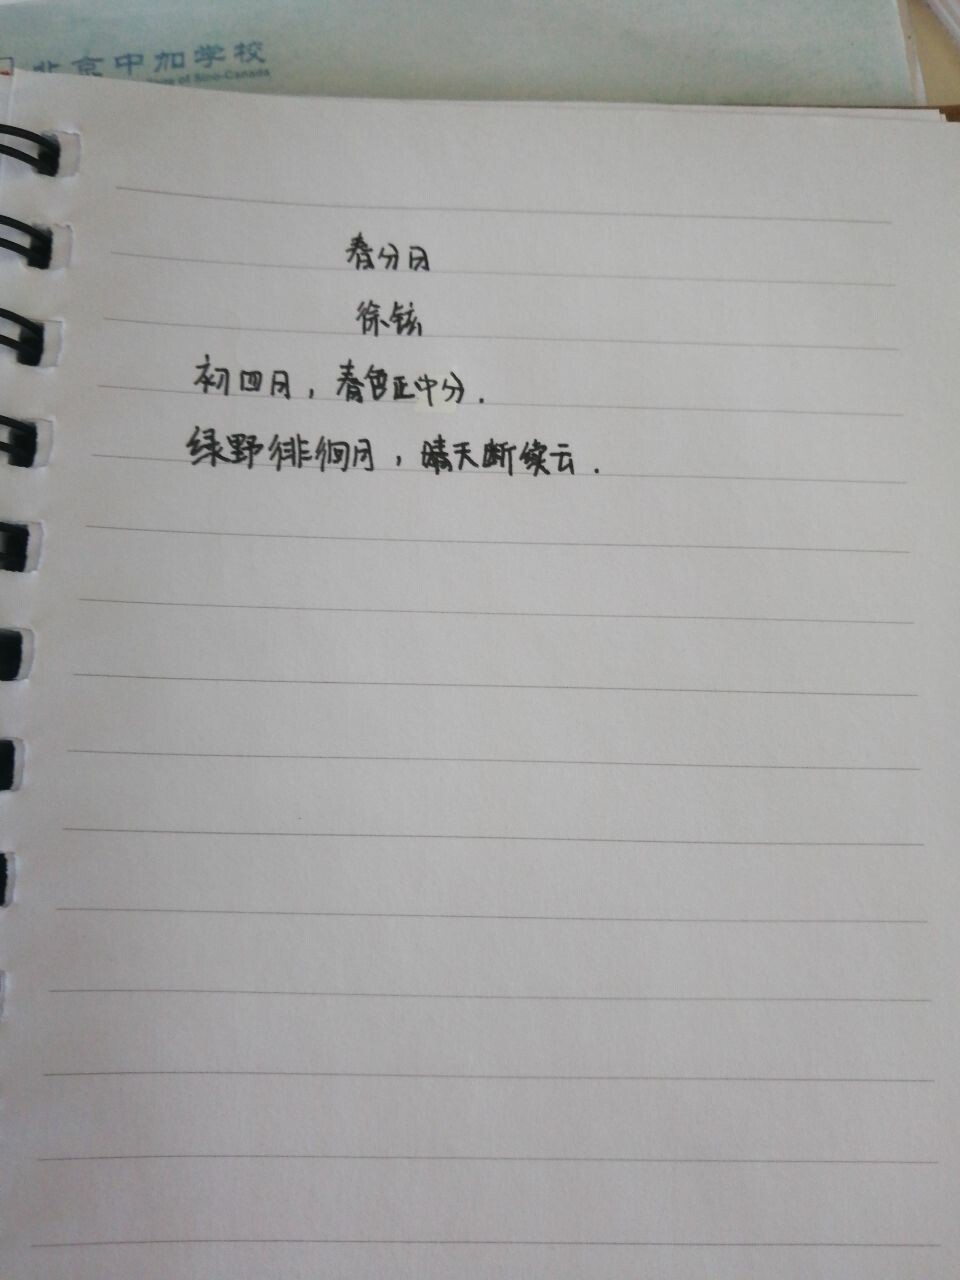 北京中加学校
of Sino-Canada
春分日
徐铉
初四日，春色正中分.
绿野徘徊月，晴天断续云.